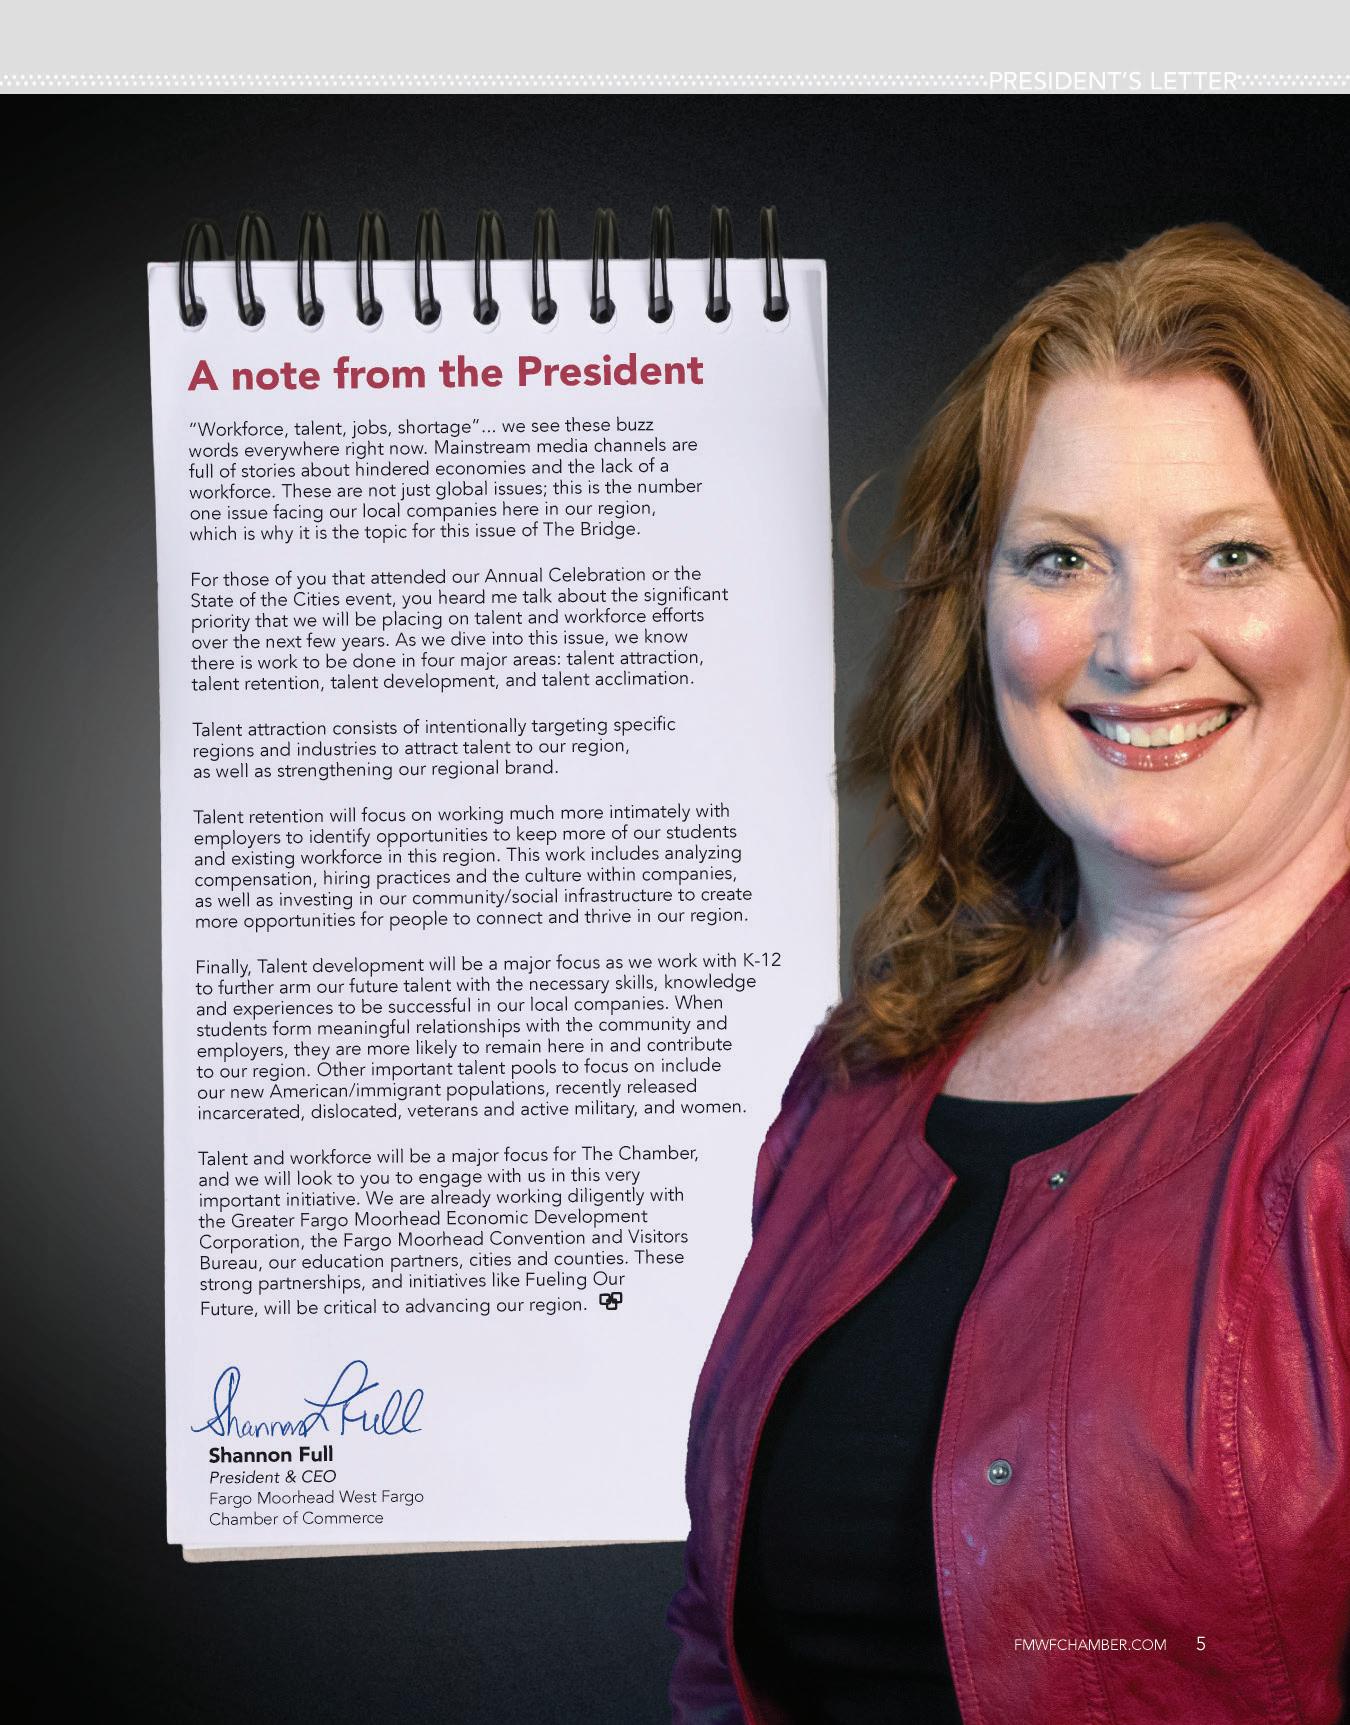 PRESIDENT'S LETTER
A note from the President
“Workforce, talent, jobs, shortage”... we see these buzz
words everywhere right now. Mainstream media channels are
full of stories about hindered economies and the lack of a
workforce. These are not just global issues; this is the number
one issue facing our local companies here in our region,
which is why it is the topic for this issue of The Bridge.
For those of you that attended our Annual Celebration or the
State of the Cities event, you heard me talk about the significant
priority that we will be placing on talent and workforce efforts
over the next few years. As we dive into this issue, we know
there is work to be done in four major areas: talent attraction,
talent retention, talent development, and talent acclimation.
Talent attraction consists of intentionally targeting specific
regions and industries to attract talent to our region,
as well as strengthening our regional brand.
Talent retention will focus on working much more intimately with
employers to identify opportunities to keep more of our students
and existing workforce in this region. This work includes analyzing
compensation, hiring practices and the culture within companies,
as well as investing in our community/social infrastructure to create
more opportunities for people to connect and thrive in our region.
Finally, Talent development will be a major focus as we work with K-12
to further arm our future talent with the necessary skills, knowledge
and experiences to be successful in our local companies. When
students form meaningful relationships with the community and
employers, they are more likely to remain here in and contribute
to our region. Other important talent pools to focus on include
our new American/immigrant populations, recently released
incarcerated, dislocated, veterans and active military, and women.
Talent and workforce will be a major focus for The Chamber,
and we will look to you to engage with us in this very
important initiative. We are already working diligently with
the Greater Fargo Moorhead Economic Development
Corporation, the Fargo Moorhead Convention and Visitors
Bureau, our education partners, cities and counties. These
strong partnerships, and initiatives like Fueling Our
Future, will be critical to advancing our region.
Shannon L Full
Shannon Full
President & CEO
Fargo Moorhead West Fargo
Chamber of Commerce
FMWFCHAMBER.COM 5